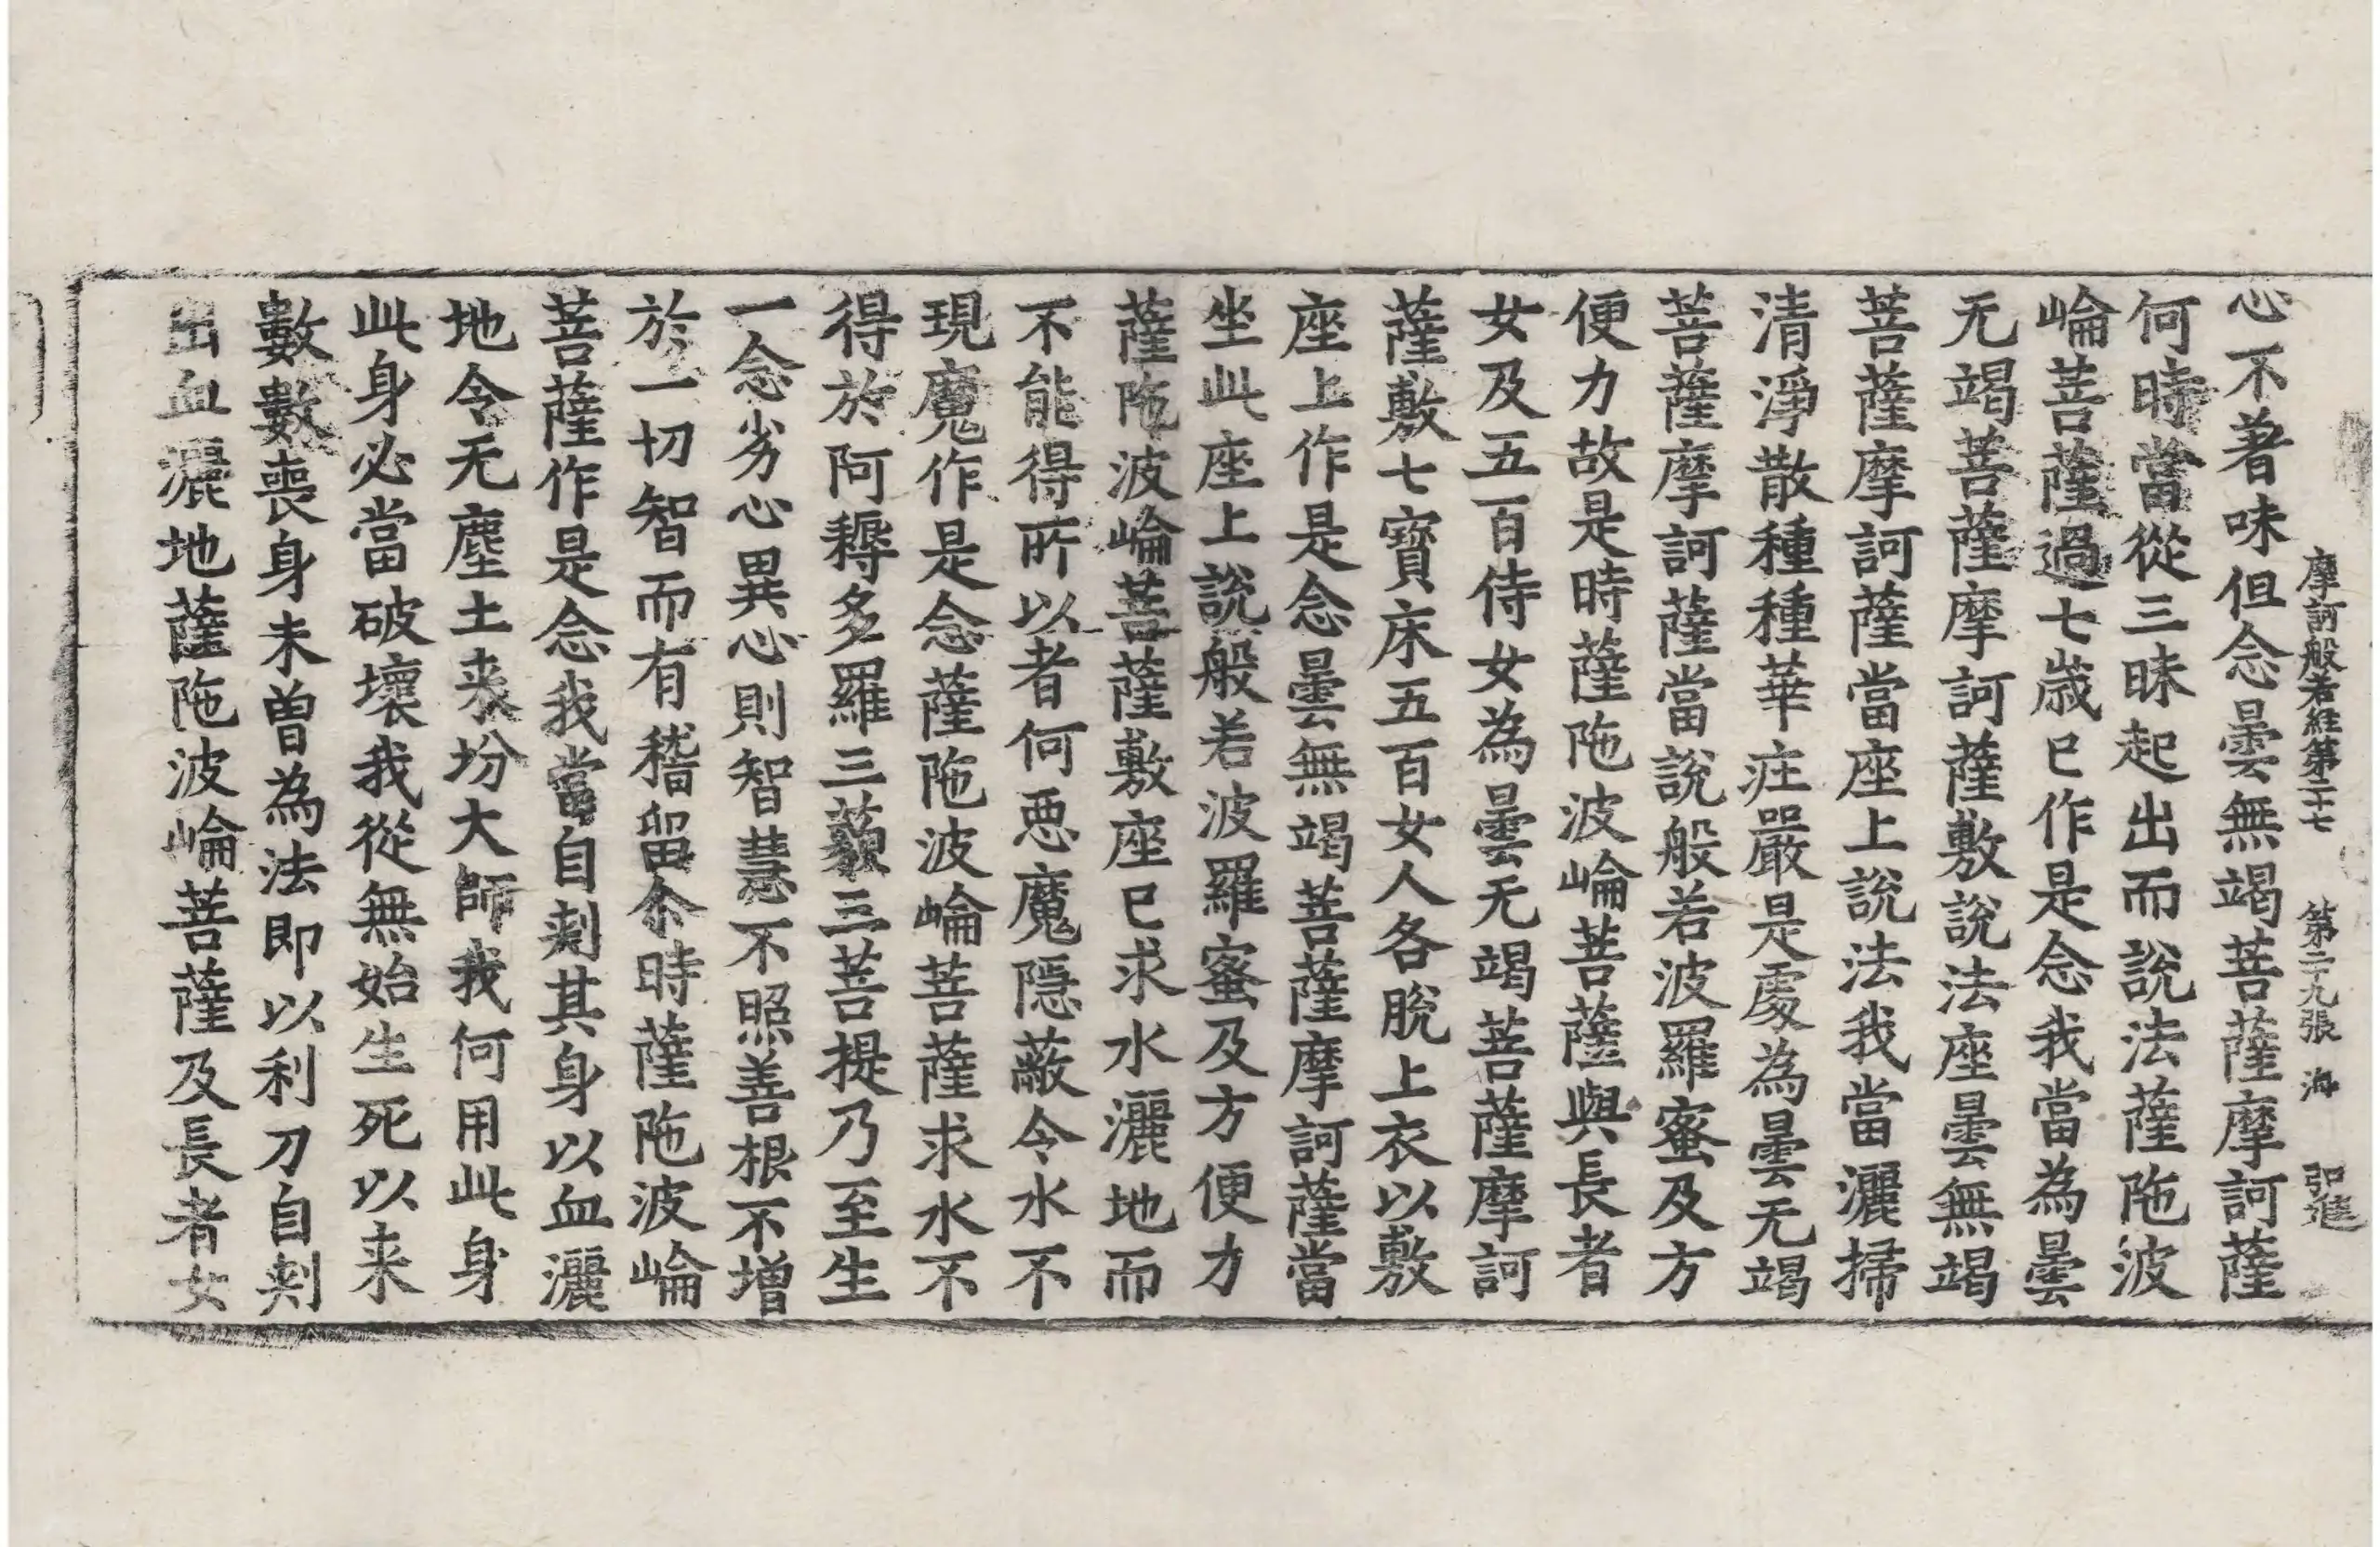 摩訶般若經第二十七　第二十九張　海
心不著味但念曇無竭菩薩摩訶薩
何時當從三昧起出而說法薩陁波
崘菩薩過七歲已作是念我當為曇
无竭菩薩摩訶薩敷說法座曇無竭
菩薩摩訶薩當座上說法我當灑掃
清淨散種種華莊嚴是處為曇无竭
菩薩摩訶薩當說般若波羅蜜及方
便力故是時薩陁波崘菩薩與長者
女及五百侍女為曇无竭菩薩摩訶
薩敷七寶床五百女人各脫上衣以敷
座上作是念曇無竭菩薩摩訶薩當
坐此座上說般若波羅蜜及方便力
薩陁波崘菩薩敷座已求水灑地而
不能得所以者何惡魔隱蔽令水不
現魔作是念薩陁波崘菩薩求水不
得於阿耨多羅三藐三菩提乃至生
一念劣心異心則智慧不照善根不增
於一切智而有稽留尒時薩陁波崘
菩薩作是念我當自刾其身以血灑
地令无塵土来坋大師我何用此身
此身必當破壞我從無始生死以来
數數喪身未曾為法即以利刀自刾
出血灑地薩陁波崘菩薩及長者女